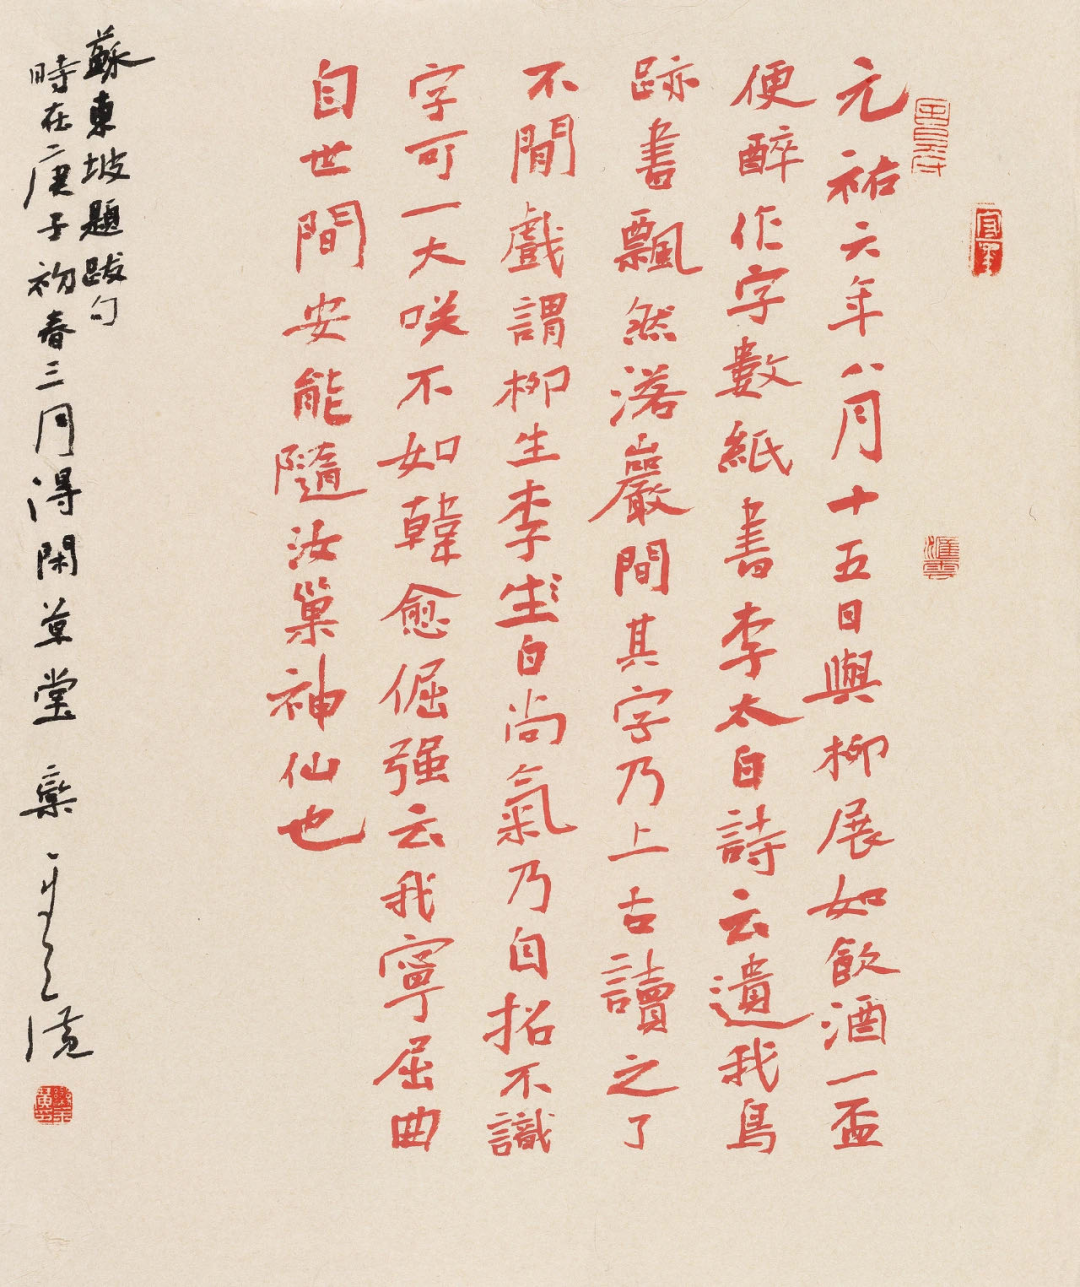 元祐六年八月十五日與柳展如飲酒一盃
便醉作字數紙書李太白詩云遺我鳥
跡書飄然落巖間其字乃上古讀之了
不閒戲謂柳生李生白尚氣乃自招不識
字可一大咲不如韓愈倔强云我寧屈曲
自世間安能隨汝巢神仙也
蘇東坡題跋句
時在庚子初春三月得閑草堂